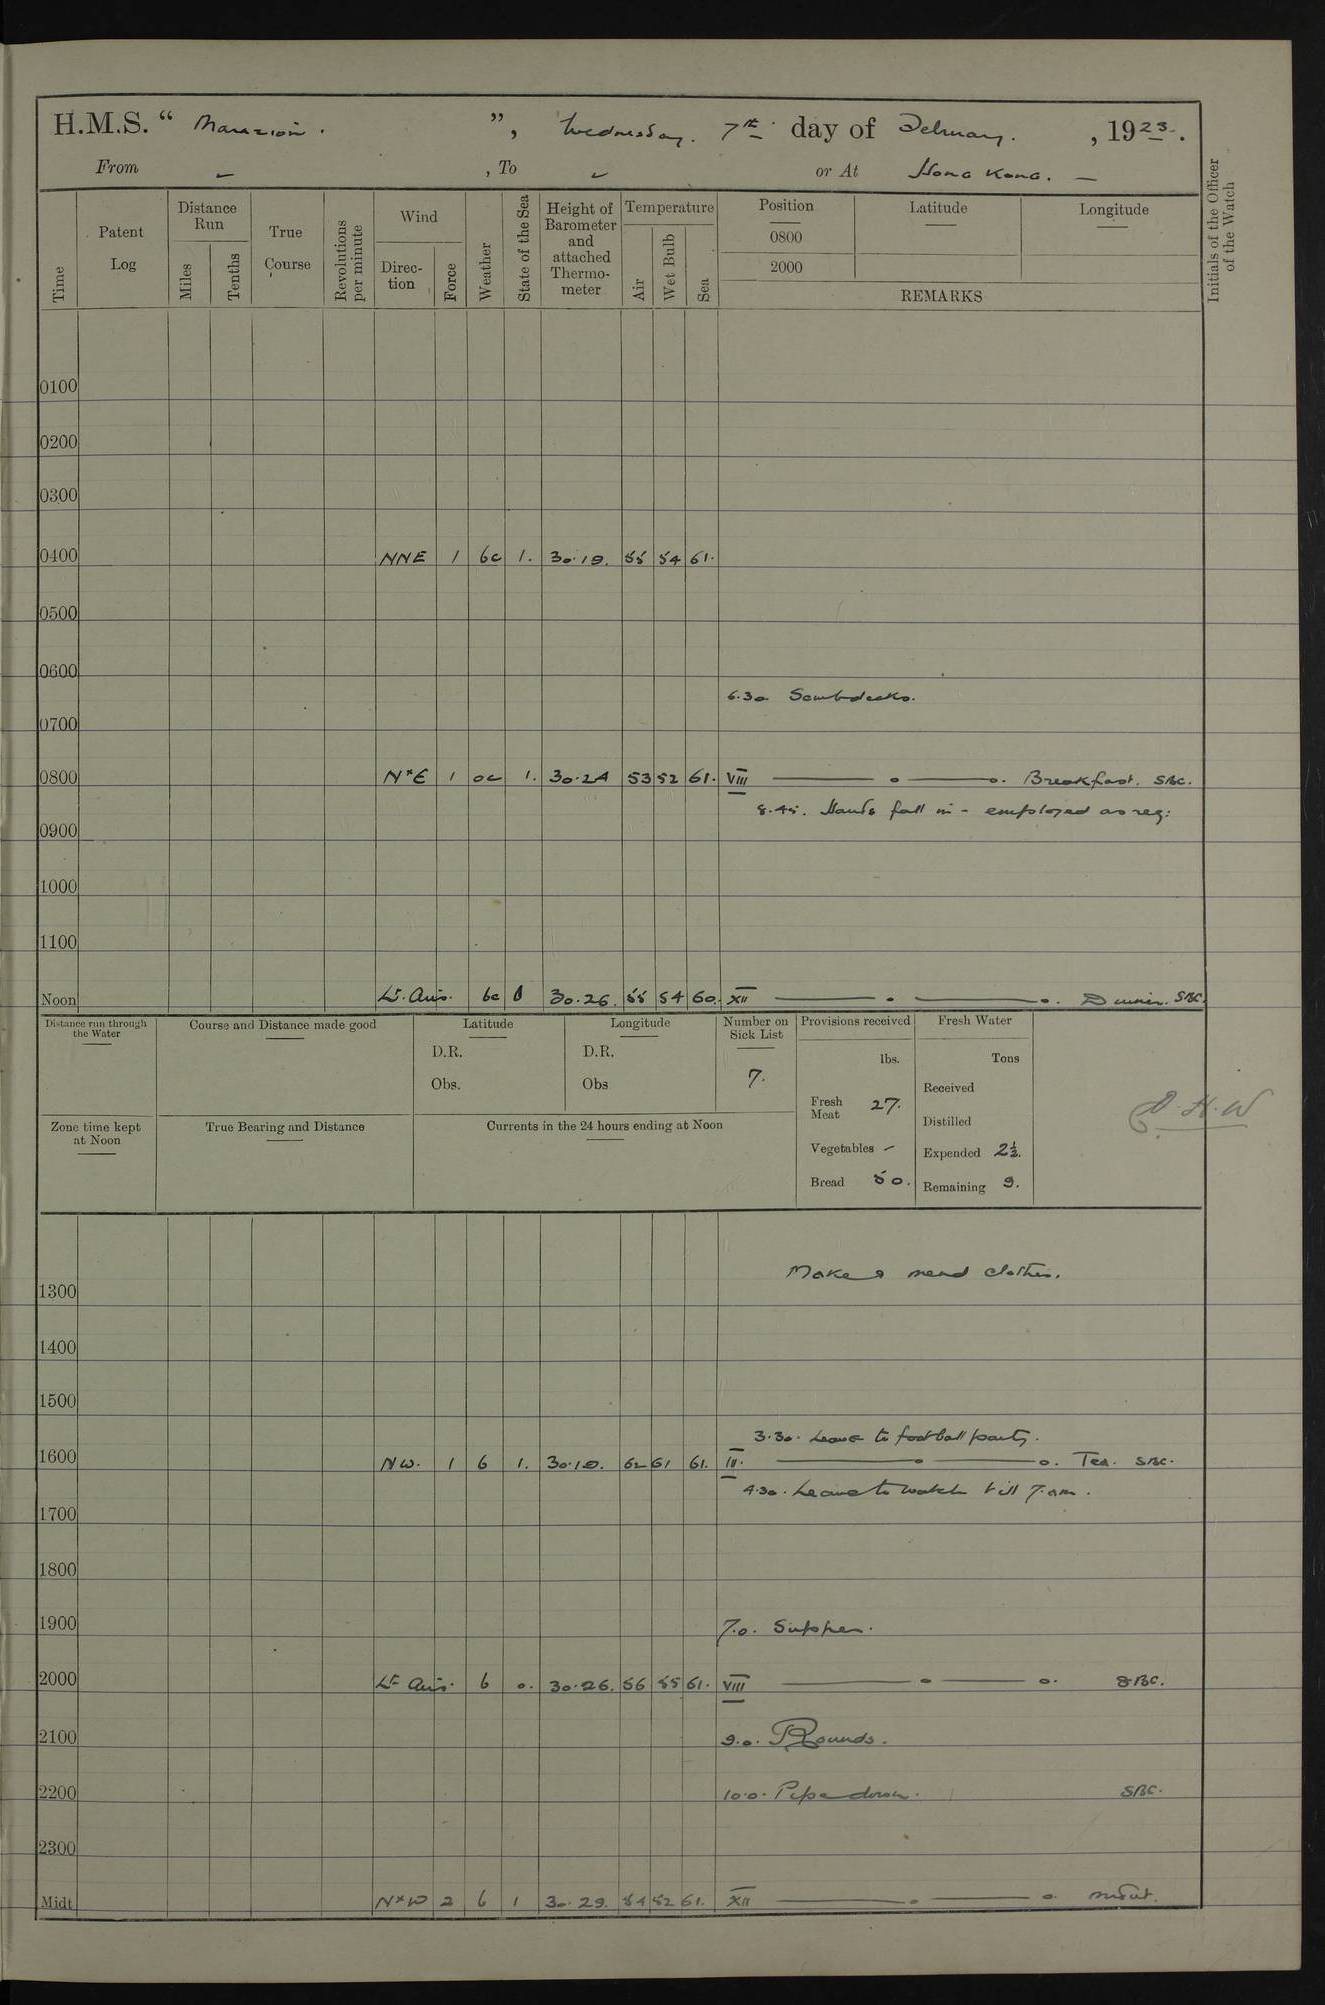 H.M.S. “ Marazion. ”, Wednesday. 7th day of February. , 1923.
From – , To – or At Hong Kong. –
Time
Patent Log
Distance Run
Miles
Tenths
True Course
Revolutions per minute
Wind
Direc-tion
Force
Weather
State of the Sea
Height of Barometer and attached Thermo-meter
Temperature
Air
Wet Bulb
Sea
Position
0800
2000
Latitude
Longitude
REMARKS
Initials of the Officer of the Watch
0100
0200
0300
0400 NNE 1 bc 1. 30.19. 55 54 61.
0500
0600
6.30 Scrub decks.
0700
0800 N×E 1 oc 1. 30.24 53 52 61. VIII Breakfast. SBC.
8.45. Hands fall in - employed as req:
0900
1000
1100
Noon Lt. Airs. bc 0 30.26. 55 54 60. XII Dinner. SBC
Distance run through the Water
Course and Distance made good
Latitude
D.R.
Obs.
Longitude
D.R.
Obs
Number on Sick List
7.
Provisions received
lbs.
Fresh Meat 27.
Vegetables –
Bread 50.
Fresh Water
Tons
Received
Distilled
Expended 2½.
Remaining 9.
Zone time kept at Noon
True Bearing and Distance
Currents in the 24 hours ending at Noon
Make & mend clothes.
1300
1400
1500
3.30. Leave to football party.
1600 NW. 1 b 1. 30.19. 62 61 61. Tea. SBC.
4.30. Leave to watch till 7.am.
1700
1800
1900 7.0. Supper.
2000 Lt Airs. b 0. 30.26. 56 55 61. VIII SBC.
2100 9.0. Rounds.
2200 10.0. Pipe down. SBC.
2300
Midt N×W 2 b 1 30.29. 54 52 61. XII